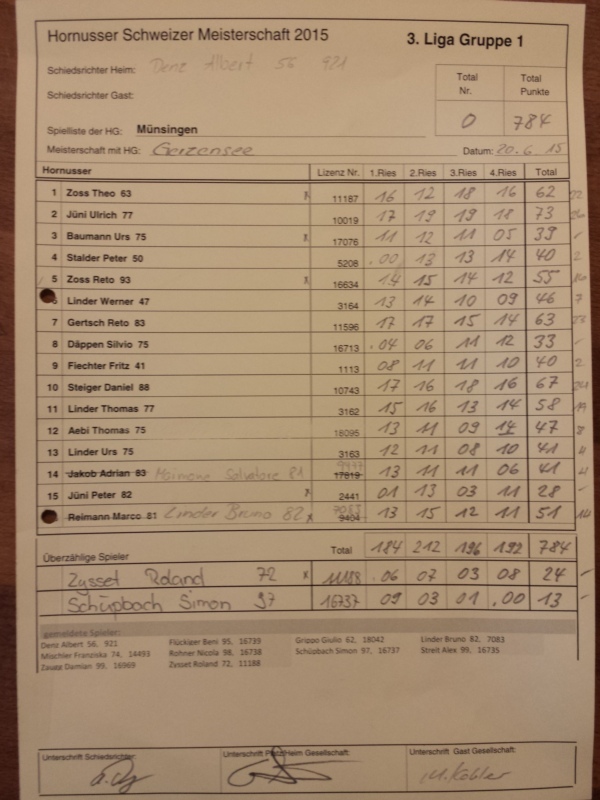 Hornusser Schweizer Meisterschaft 2015 3. Liga Gruppe 1
Schiedsrichter Heim: Denz Albert 56 921
Schiedsrichter Gast:
Total Nr. Total Punkte
0 784
Spielliste der HG: Münsingen
Meisterschaft mit HG: Gerzensee Datum: 20.6.15
Hornusser Lizenz Nr. 1.Ries 2.Ries 3.Ries 4.Ries Total
1 Zoss Theo 63 x 11187 16 12 18 16 62 22
2 Jüni Ulrich 77 10019 17 19 19 18 73
3 Baumann Urs 75 x 17076 11 12 11 05 39 -
4 Stalder Peter 50 5208 .00 13 13 14 40 2
5 Zoss Reto 93 x 16634 14 15 14 12 55
Linder Werner 47 3164 13 14 10 09 46 7
7 Gertsch Reto 83 11596 17 17 15 14 63 23
8 Däppen Silvio 75 16713 .04 06 11 12 33 -
9 Fiechter Fritz 41 1113 08 11 11 10 40 2
10 Steiger Daniel 88 10743 17 16 18 16 67
11 Linder Thomas 77 3162 15 16 13 14 58 19
12 Aebi Thomas 75 18095 13 11 09 14 47 8
13 Linder Urs 75 3163 12 11 08 10 41 4
14 Jakob Adrian 83 Maimone Salvatore 81 9477 17819 13 11 11 06 41 4
15 Jüni Peter 82 x 2441 01 13 03 11 28 -
Reimann Marco 81 Linder Bruno 82 x 7083 9404 13 15 12 11 51 14
Überzählige Spieler Total 184 212 196 192 784
Zysset Roland 72 x 11188 .06 07 03 08 24 -
Schüpbach Simon 97 16737 09 03 01 .00 13 -
gemeldete Spieler:
Denz Albert 56, 921 Flückiger Beni 95, 16739 Grippo Giulio 62, 18042 Linder Bruno 82, 7083
Mischler Franziska 74, 14493 Rohner Nicola 98, 16738 Schüpbach Simon 97, 16737 Streit Alex 99, 16735
Zaugg Damian 99, 16969 Zysset Roland 72, 11188
Unterschrift Schiedsrichter: Unterschrift Platz/Heim Gesellschaft: Unterschrift Gast Gesellschaft:
M. Kobler